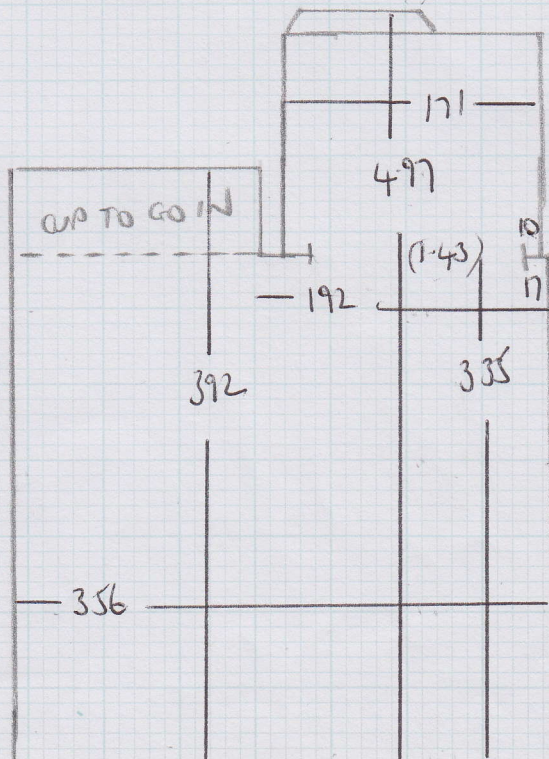 171
4.97
CUP TO GO IN
10
(1.43)
17
192
392
335
356